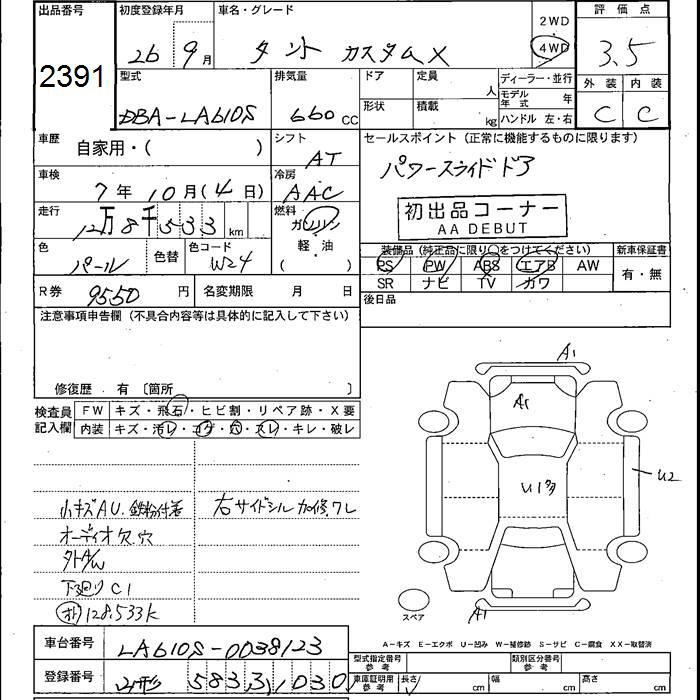 出品番号
2391
初度登録年月
26 9月
車名・グレード
タント カスタムX
2WD
4WD
評価点
3.5
外装 内装
C C
型式
DBA-LA610S
排気量
660 cc
ドア 定員 人
形状 積載 kg
ディーラー・並行
モデル年式 年
ハンドル 左・右
車歴
自家用・( )
シフト
AT
セールスポイント (正常に機能するものに限ります)
パワースライドドア
車検
7年 10月(4日)
冷房
AAC
初出品コーナー
AA DEBUT
走行
12万8千533 km
燃料
ガソリン
軽・油
( )
色
パール
色替
色コード
W24
装備品 (純正品に限り○をつけてください)
PS PW ABS エアB AW
SR ナビ TV カワ
新車保証書
有・無
R券
9550 円
名変期限 月 日
後日品
注意事項申告欄 (不具合内容等は具体的に記入して下さい)
修復歴 有 〔箇所 〕
検査員記入欄
FW キズ・飛石・ヒビ割・リペア跡・X要
内装 キズ・汚レ・コゲ・穴・スレ・キレ・破レ
小キズAU.鉄粉付着
オーディオ欠.穴
外AW
下廻りC1
128.533K
右サイドシル加修ワレ
A1
A1
U1多
U2
A1
スペア
A-キズ E-エクボ U-凹み W-補修跡 S-サビ C-腐食 XX-取替済
車台番号
LA610S-0038123
登録番号
山形 583 3 1030
型式指定番号 参考
類別区分番号 参考
車庫証明用 参考
長さ cm
幅 cm
高さ cm